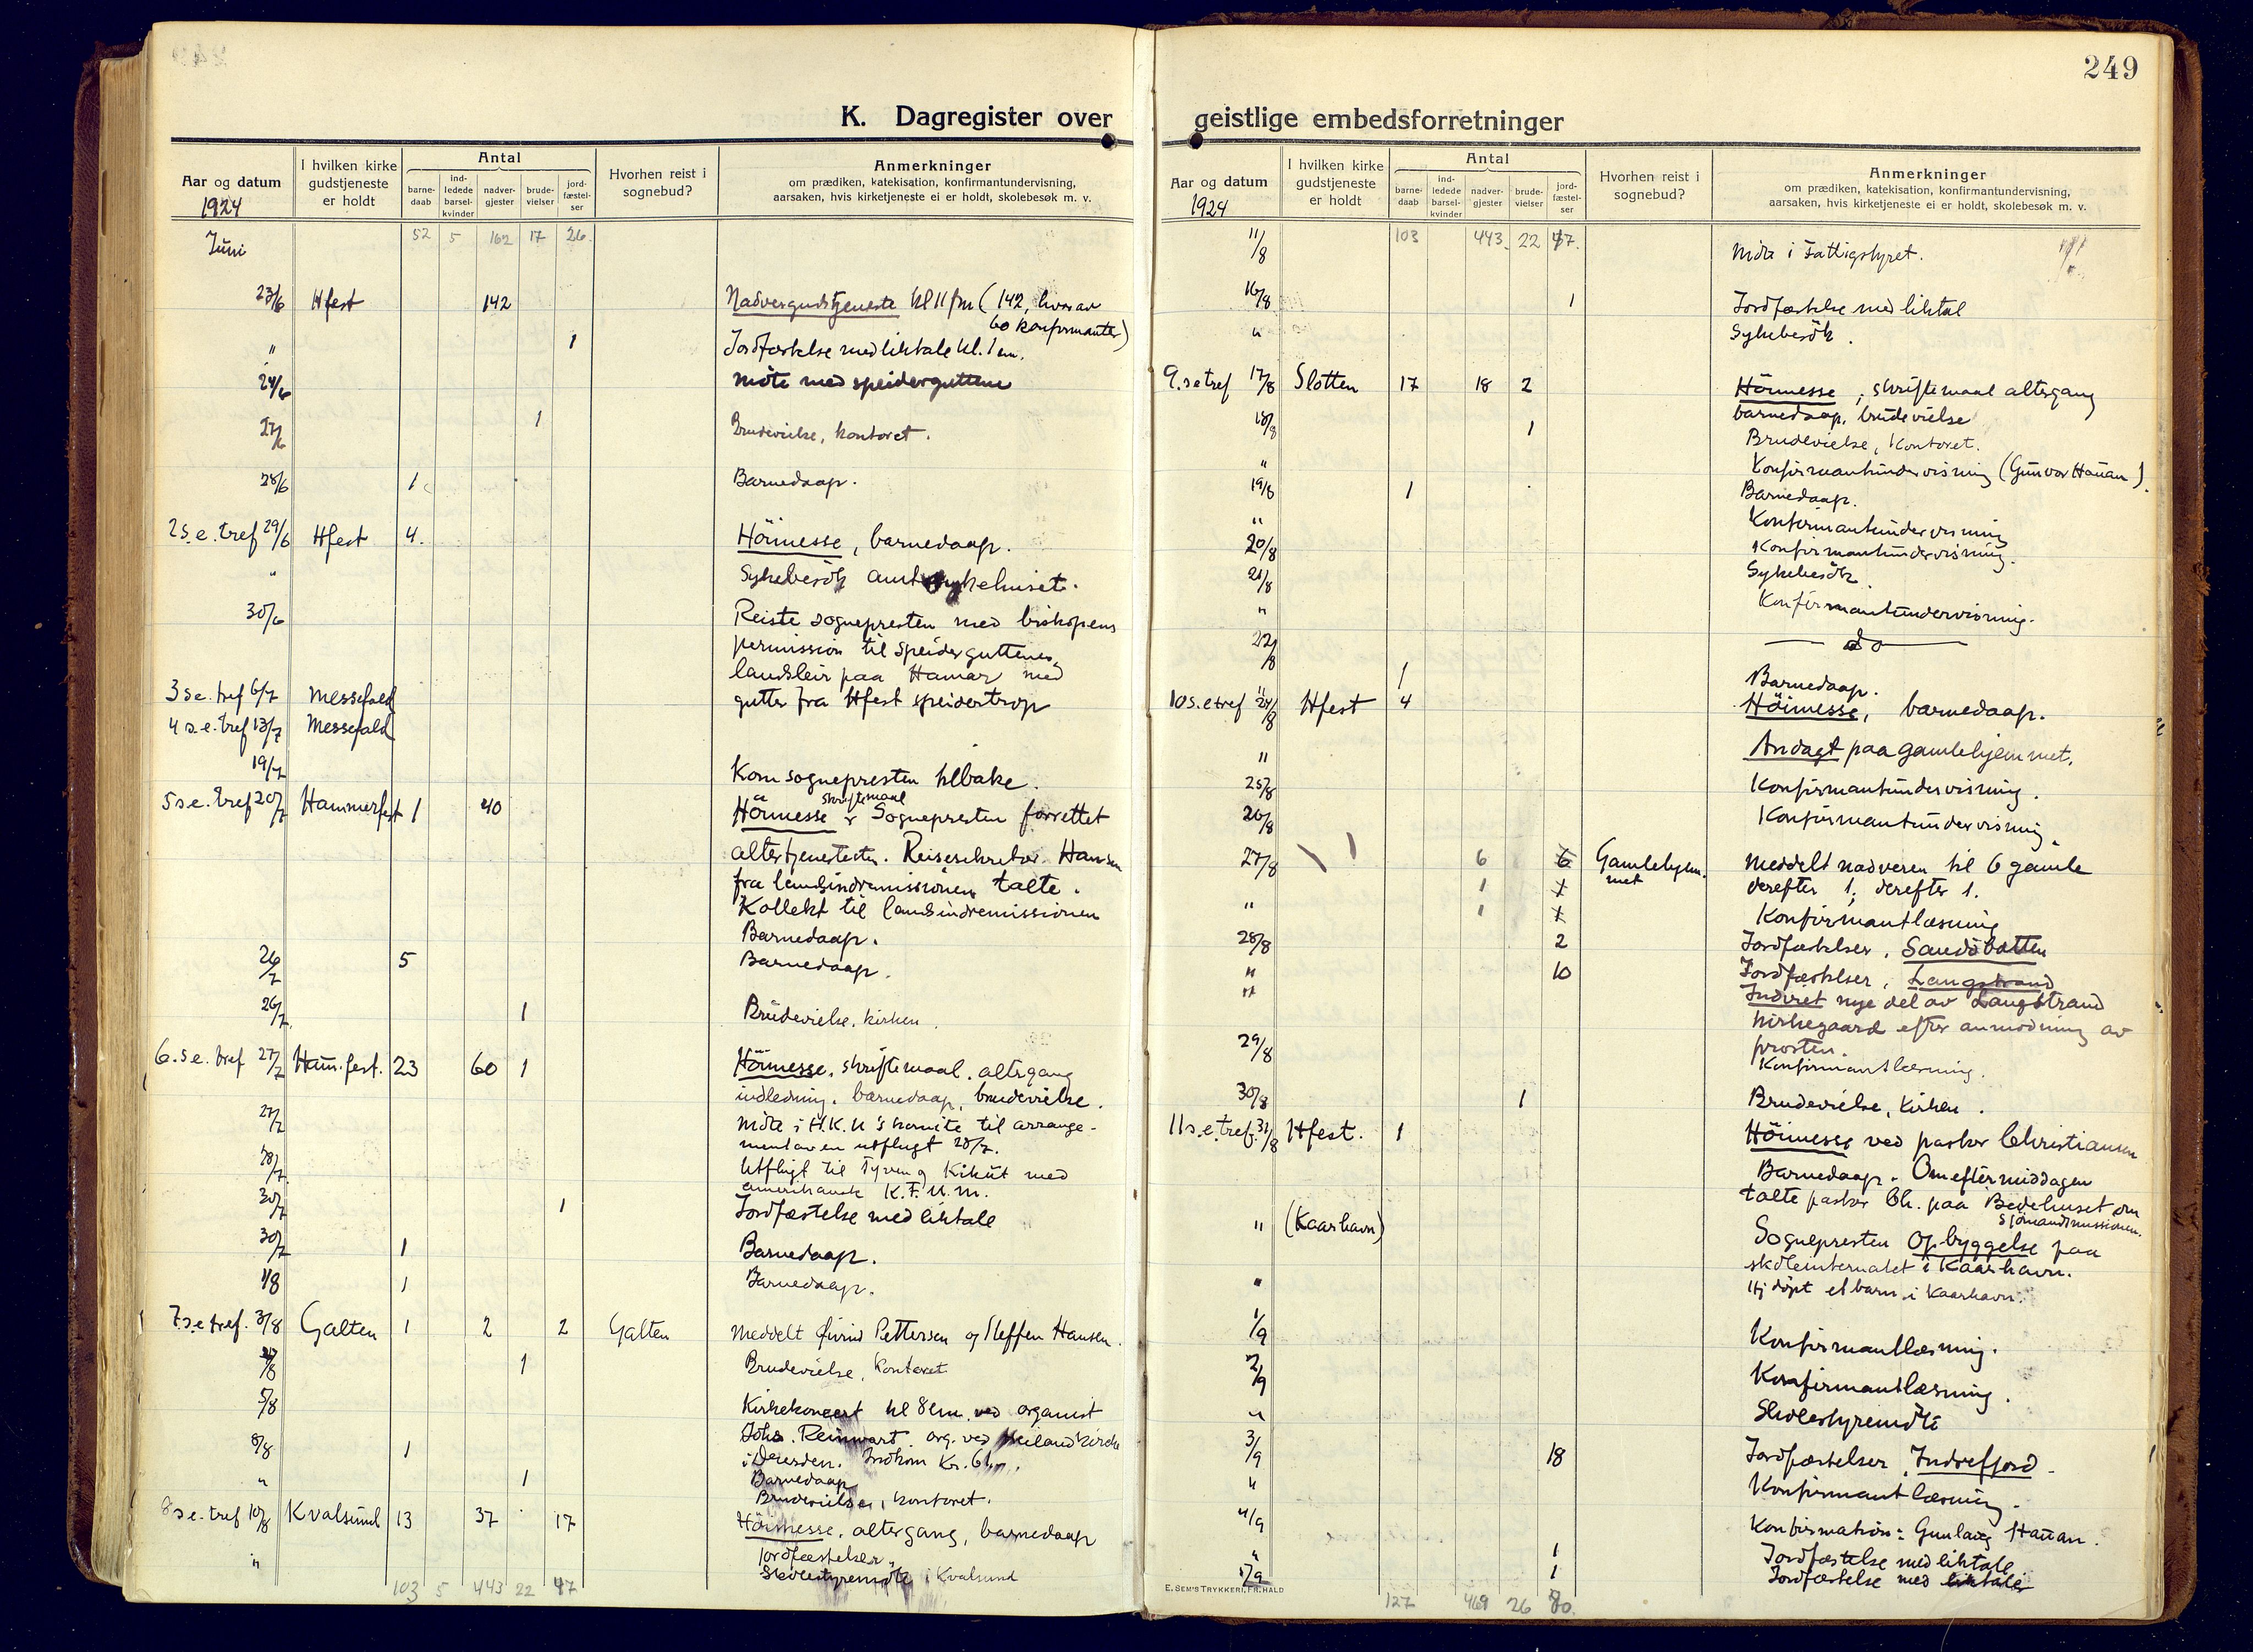 249
K. Dagregister over geistlige embedsforretninger
Aar og datum
1924
I hvilken kirke gudstjeneste er holdt
Antal
barnedaab
indledede barselkvinder
nadvergjester
brudevielser
jordfæstelser
Hvorhen reist i sognebud?
Anmerkninger
om prædiken, katekisation, konfirmantundervisning,
aarsaken, hvis kirketjeneste ei er holdt, skolebesøk m. v.
Juni 52 5 162 17 26.
23/6 Hfest 142 Nadvergudstjeneste kl 11 fm (142, hvorav
60 konfirmanter)
" 1 Jordfæstelse med liktale kl. 1 em.
24/6 møte med speiderguttene
27/6 1 Brudevielse, kontoret.
28/6 1 Barnedaap.
2 s.e. tref 29/6 Hfest 4. Höimesse, barnedaap.
" Sykebesök amtsykehuset.
30/6 Reiste sognepresten med biskopens
permission til speiderguttenes
landsleir paa Hamar med
3 s.e. tref 6/7 Messefald gutter fra Hfest speidertrop
4 s.e. tref 13/7 Messefald
19/7 Kom sognepresten tilbake.
5 s.e. tref 20/7 Hammerfest 1 40 Höimesse skriftemaal Sognepresten forrettet
altertjenesten. Reisesekretær Hansen
fra landsindremissionen talte.
Kollekt til landsindremissionen
Barnedaap.
26/7 5 Barnedaap.
26/7 1 Brudevielse, kirken.
6. s.e. tref 27/7 Ham.fest. 23 60 1 Höimesse, skriftemaal, altergang
indledning, barnedaap, brudevielse.
27/7 møte i H.K.U's komite til arrange-
ment av en utflugt 28/7.
28/7 Utflugt til Tyven og Kikut med
amerikansk K.F.U.M.
30/7 1 Jordfæstelse med liktale
30/7 1 Barnedaap.
1/8 1 Barnedaap.
7 s.e tref. 3/8 Galten 1 2 2 Galten Meddelt Øivind Pettersen og Steffen Hansen.
/8 1 Brudevielse, kontoret
5/8 Kirkekoncert kl 8 em. ved organist
Johs. Reinwart. org. ved Heilandkirche
8/8 1 i Dresden. Indkom Kr.
Barnedaap
" 1 Brudevielse, kontoret.
8 s.e. tref 10/8 Kvalsund 13 37 17 Höimesse, altergang, barnedaap
jordfæstelser.
" Skolestyremøte i Kvalsund
103 5 443 22 47
Aar og datum
1924
I hvilken kirke gudstjeneste er holdt
Antal
barnedaab
indledede barselkvinder
nadvergjester
brudevielser
jordfæstelser
Hvorhen reist i sognebud?
Anmerkninger
om prædiken, katekisation, konfirmantundervisning,
aarsaken, hvis kirketjeneste ei er holdt, skolebesøk m. v.
11/8 103 443. 22 47. møte i Fattigstyret.
16/8 1 Jordfæstelse med liktal
" Sykebesök.
9. s e tref 17/8 Slotten 17 18 2 Höimesse, skriftemaal altergang
barnedaap, brudevielse
18/8 1 Brudevielse, kontoret.
" Konfirmantundervisning (Gunvor Hauan).
19/8 1 Barnedaap.
" Konfirmantundervisning
20/8 Konfirmantundervisning.
21/8 Sykebesök.
" Konfirmantundervisning.
22/8 — do —
" 1 Barnedaap.
10 s.e tref 24/8 Hfest 4 Höimesse, barnedaap.
" Andagt paa gamlehjemmet.
25/8 Konfirmantundervisning.
26/8 Konfirmantundervisning
27/8 6 6 Gamlehjemmet Meddelt nadveren til 6 gamle
1 1 derefter 1, derefter 1.
" 1 1 Konfirmantlæsning
28/8 2 Jordfæstelser, Sandøbotten
" 10 Jordfæstelser, Langstrand
" Indviet nye del av Langstrand
kirkegaard efter anmodning av
prosten.
29/8 Konfirmantlæsning.
30/8 1 Brudevielse, kirken.
11 s.e. tref. 31/8 Hfest. 1 Höimesse ved pastor Christiansen
Barnedaap. Om eftermiddagen
talte pastor Ch. paa Bedehuset om
Sjömandsmissionen.
" (Kaarhavn) Sognepresten Opbyggelse paa
skoleinternatet i Kaarhavn.
" Hj døpt et barn i Kaarhavn.
1/9 Konfirmantlæsning.
2/9 Konfirmantlæsning.
" Skolestyremöte
3/9 18 Jordfæstelser, Indrefjord.
" Konfirmantlæsning.
4/9 Konfirmation: Gunlaug Hauan.
" 1 Jordfæstelse med liktale
5/9 1 Jordfæstelse med liktale
E. SEM'S TRYKKERI, FR.HALD
127 469 26 80.